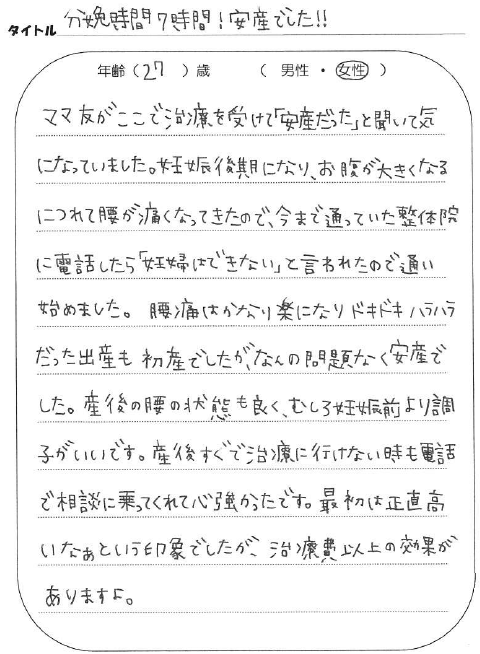 タイトル 分娩時間7時間!安産でした!!
年齢(27)歳 (男性・女性)
ママ友がここで治療を受けて「安産だった」と聞いて気
になっていました。妊娠後期になり、お腹が大きくなる
につれて腰が痛くなってきたので、今まで通っていた整体院
に電話したら「妊婦はできない」と言われたので通い
始めました。腰痛はかなり楽になりドキドキハラハラ
だった出産も初産でしたが、なんの問題なく安産で
した。産後の腰の状態も良く、むしろ妊娠前より調
子がいいです。産後すぐで治療に行けない時も電話
で相談に乗ってくれて心強かったです。最初は正直高
いなぁという印象でしたが、治療費以上の効果が
ありますよ。